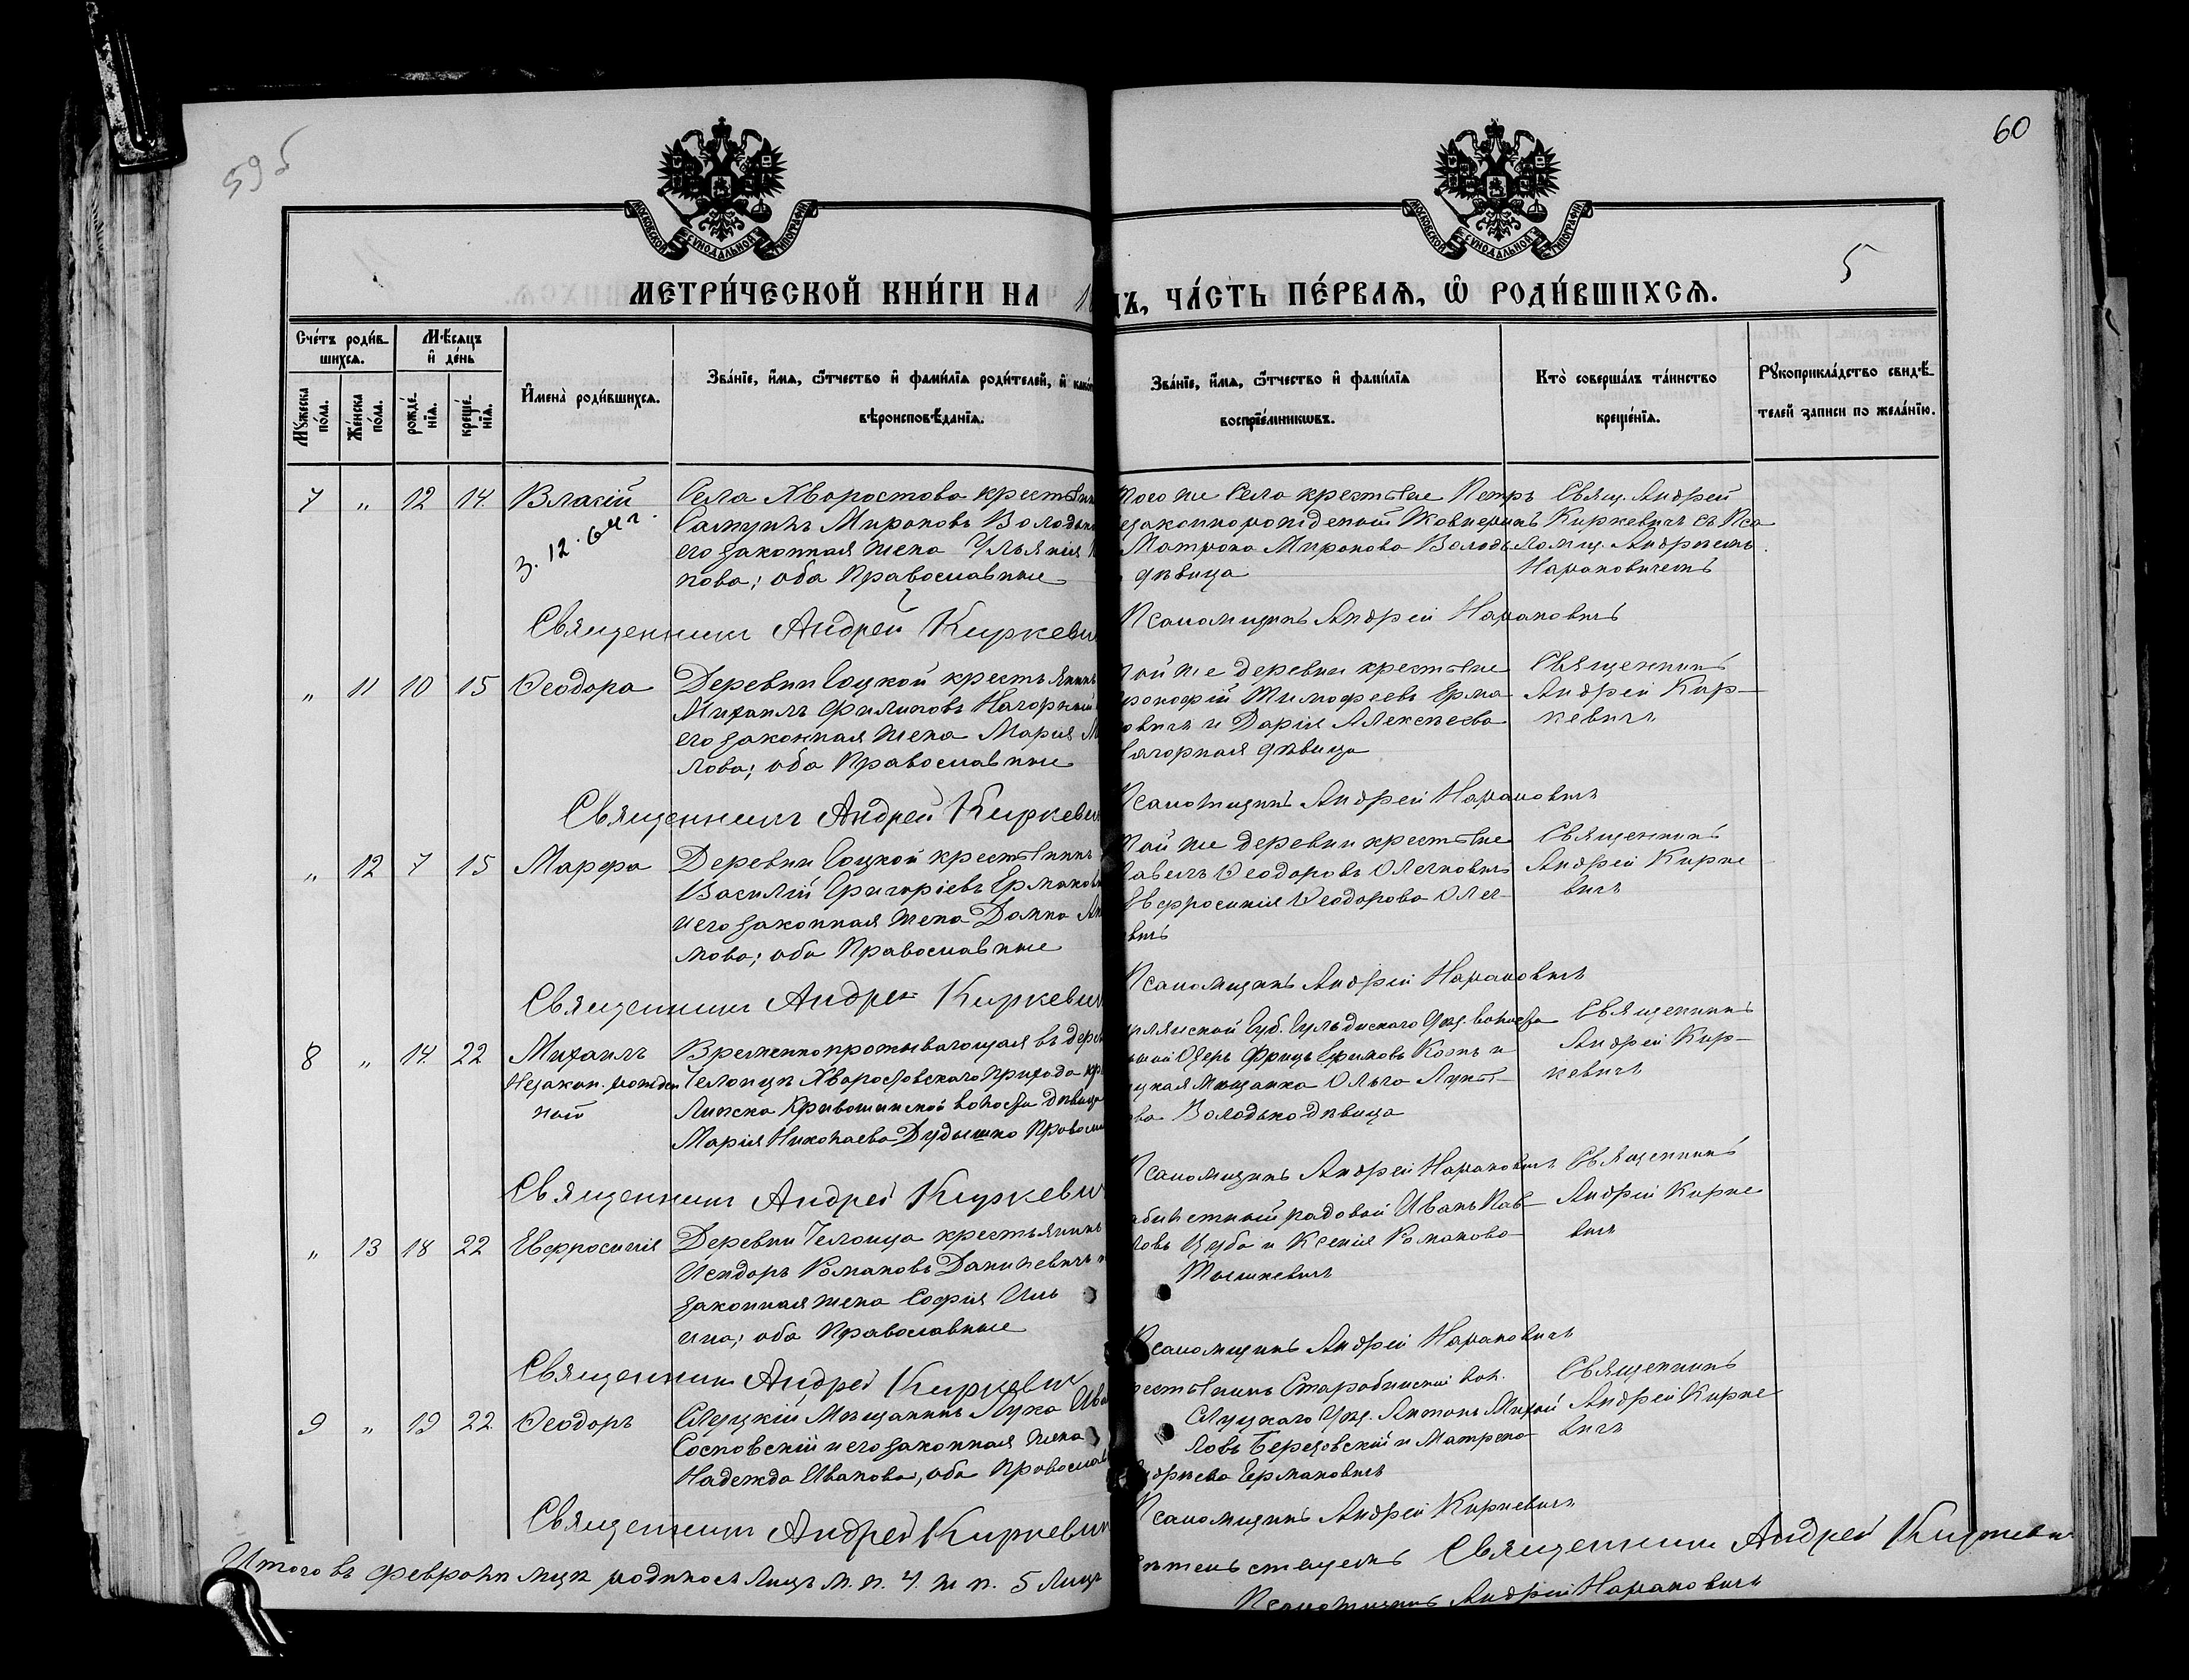 59 б
60
5
МОСКОВСКОЙ СУНОДАЛЬНОЙ ТИПОГРАФІИ
МОСКОВСКОЙ СУНОДАЛЬНОЙ ТИПОГРАФІИ
МЕТРИ́ЧЕСКОЙ КНИ́ГИ НА 1
ДЪ, ЧА́СТЬ ПЕ́РВАѦ, Ѡ РОДИ́ВШИХСѦ.
Сче́тъ роди́в-
шихсѧ.
Мѣ́сѧцъ
и де́нь
Мꙋ́жеска по́ла.
Же́нска по́ла.
рожде́нїѧ.
креще́нїѧ.
И҆мена̀ роди́вшихсѧ.
Зва́нїе, и҆́мѧ, ѻ҆́тчество и҆ фами́лїѧ роди́телей, и҆ како́
вѣроисповѣ́данїѧ.
Зва́нїе, и҆́мѧ, ѻ҆́тчество и҆ фами́лїѧ
воспрїе́мникѡвъ.
Кто̀ соверша́лъ та́инство
креще́нїѧ.
Рꙋкоприкла́дство свидѣ́-
телей записи по жела́нїю.
7 „ 12 14. Власій Села Хворостова крестьянин
з. 12. Самуилъ Мироновъ Володьк
его законная жена Ульянія
нова; оба Православные
того же Села крестьяне Петръ
незаконнорожденный
Матрона Миронова Володь
дѣвица
Свящ. Андрей
Киркевичъ съ Пса
ломщ. Андреемъ
Наркановичемъ
Священникъ Андрей Киркевич
Псаломщикъ Андрей
„ 11 10 15 Ѳеодора Деревни Гоцкой крестьянинъ
Михаилъ Филиповъ Нагорный
его законная жена Марія М
лова; оба Православные
той же деревни крестьяне
Прокофій Тимофеевъ Ерма
овичъ и Дарія Алексѣева
Нагорная дѣвица
Священникъ
Андрей Кир-
кевичъ
Священникъ Андрей Киркевич
Псаломщикъ Андрей
„ 12 7 15 Марфа Деревни Гоцкой крестьянинъ
Василій Григоріевъ Ермакови
и его законная жена Домна
мова; оба Православные
той же деревни крестьяне
Павелъ Ѳеодоровъ Олехновичъ
Евфросинія Ѳеодорова Олех-
вичъ
Священникъ
Андрей Кирке
вичъ
Священникъ Андрей Киркевич
Псаломщикъ Андрей
8 „ 14. 22 Михаилъ Временно проживающая въ дер
Незакон. рожден Челонца Хворостовскаго прихода кр
ный Липска Кривошинской волости дѣвица
Марія Николаева Дудышко Правосл
Губ. волости
Фрицъ и
Мѣщанка Ольга
ва Володько дѣвица
Священникъ
Андрей Кир-
кевичъ
Священникъ Андрей Киркевич
Псаломщикъ Андрей
„ 13 18 22 Евфросинія Деревни Челонца крестьянинъ
Исидоръ Романовъ Данилевичъ и
законная жена Софія Иль
ина; оба Православные
рядовой Иванъ Пав-
ловъ и Ксенія Романова
Священникъ
Андрей Кирке
вичъ
Священникъ Андрей Киркевич
Псаломщикъ Андрей
9 „ 19 22. Ѳеодоръ Слуцкій Мѣщанинъ Лука Ива
Сосновскій и его законная жена
Надежда Иванова, оба Православ
крестьянинъ Старобинской вол.
Слуцкаго Уѣз. Антонъ Михай
ловъ Березовскій и Матрена
Андреева Ермаковичъ
Священникъ
Андрей Кирке
вичъ
Священникъ Андрей Киркевич
Псаломщикъ Андрей Киркевичъ
Итого въ Февралѣ м-цѣ родилось лицъ м. п. 4. ж п. 5 лицъ
Священникъ Андрей Киркевич
Псаломщикъ Андрей